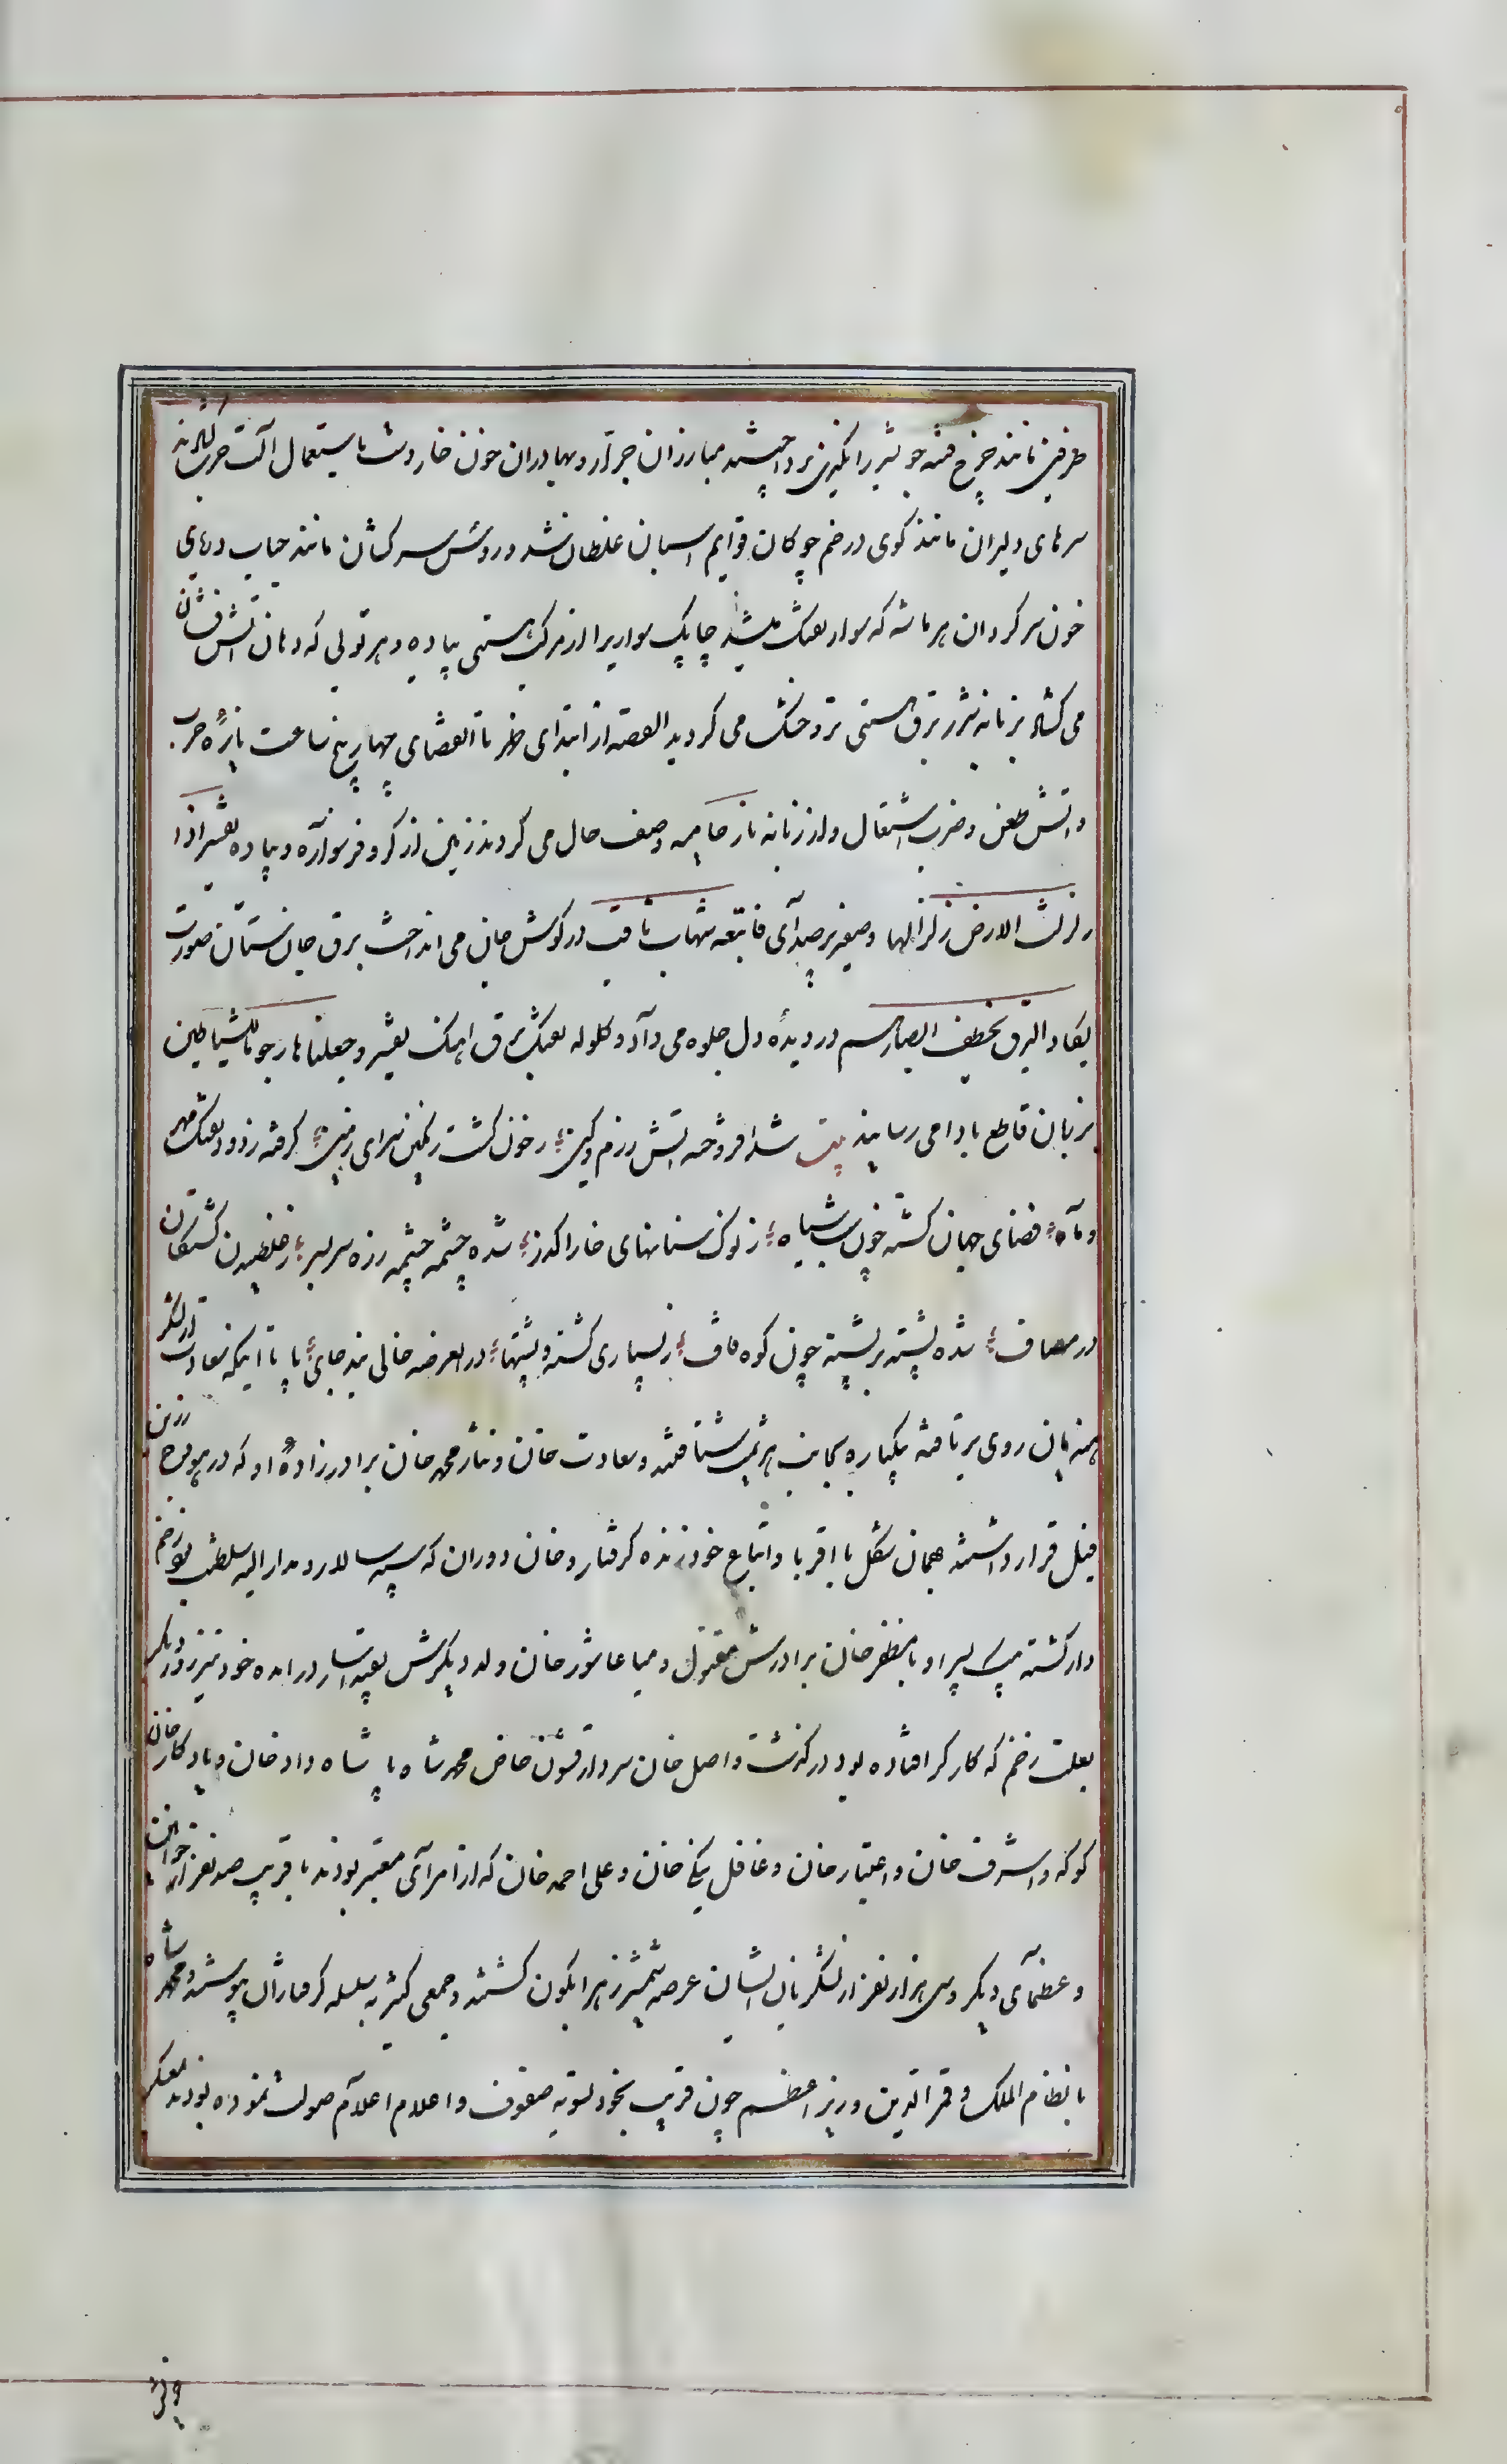 طرفین مانند چرخ فتنه جو بشر انگیزی پرداختند مبارزان جرّار و بهادران خون خار دست باستعمال آلت حرب کشادند
سرهای دلیران مانند کوی در خم چوکان قوایم اسبان غلطان شد و رؤس سرکشان مانند حباب دریای
خون سرکردان هر ماشه که سوار تفنک میشد چابک سواریرا از مرکب هستی پیاده و هر توپی که دهان آتش فشان
می کشاد بزبانه شرر برق هستی تر و خشک می کردید القصه از ابتدای ظهر تا انقضای چهار پنج ساعت نایرهٔ حرب
و اتش طعن و ضرب اشتعال و از زبانه نار حامیه وصف حال می کردند زمین از کر و فر سواره و پیاده تفسیر اذا
زلزلت الارض زلزالها و صفیر پر صدای فاتبعه شهاب ثاقب در کوش جان می انداخت برق جان ستان صورت
یکاد البرق یخطف ابصارهم در دیدهٔ دل جلوه می داد و کلوله تفنک برق اهنک تفسیر وجعلناها رجوما للشیاطین
بزبان قاطع بادا می رسانید بیت شد افروخته اتش رزم و کین ز خون کشت رنکین سرای زمین کرفته ز دود تفنک مهر
و ماه فضای جهان کشته خون سیاه ز نوک سنانهای خارا کذر شده چشمه چشمه زره سر بسر ز غلطیدن کشتکان
در مصاف شده پشته بر پشته چون کوه قاف ز بسیاری کشته و پشتها در انعرضه خالی نبد جای پا تا اینکه سعادت از لشکر
هندیان روی بر تافته یکباره بجانب هزیمت شتافتند و سعادت خان و نثار محمد خان برادرزادهٔ او که در هودج زرین
فیل قرار داشتند همان شکل با اقربا و اتباع خود زنده کرفتار و خان دوران که سپه سالار و مدار الیه سلطنت بود زخم
دار کشته یک پسر او با مظفر خان برادرش مقتول و میا عاشور خان ولد دیکرش بقید اسار در امده خود نیز روز دیکر
بعلت زخم که کارکر افتاده بود درکذشت و اصل خان سردار قشون خاص محمد شاه با شاه داد خان و یادکار خان
کوکه و اشرف خان و اعتبار خان و عاقل بیک خان و علی احمد خان که از امرای معتبر بودند با قریب صد نفر از خوانین
و عظمای دیکر و سی هزار نفر از لشکریان ایشان عرضه شمشیر زهرابکون کشتند و جمعی کثیر به سلسله کرفتاران پیوستند و محمد شاه
با نظام الملک و قمر الدین وزیر اعظم چون قریب بخود تسویه صفوف و اعلام اعلام صولت نموده بودند بمعسکر